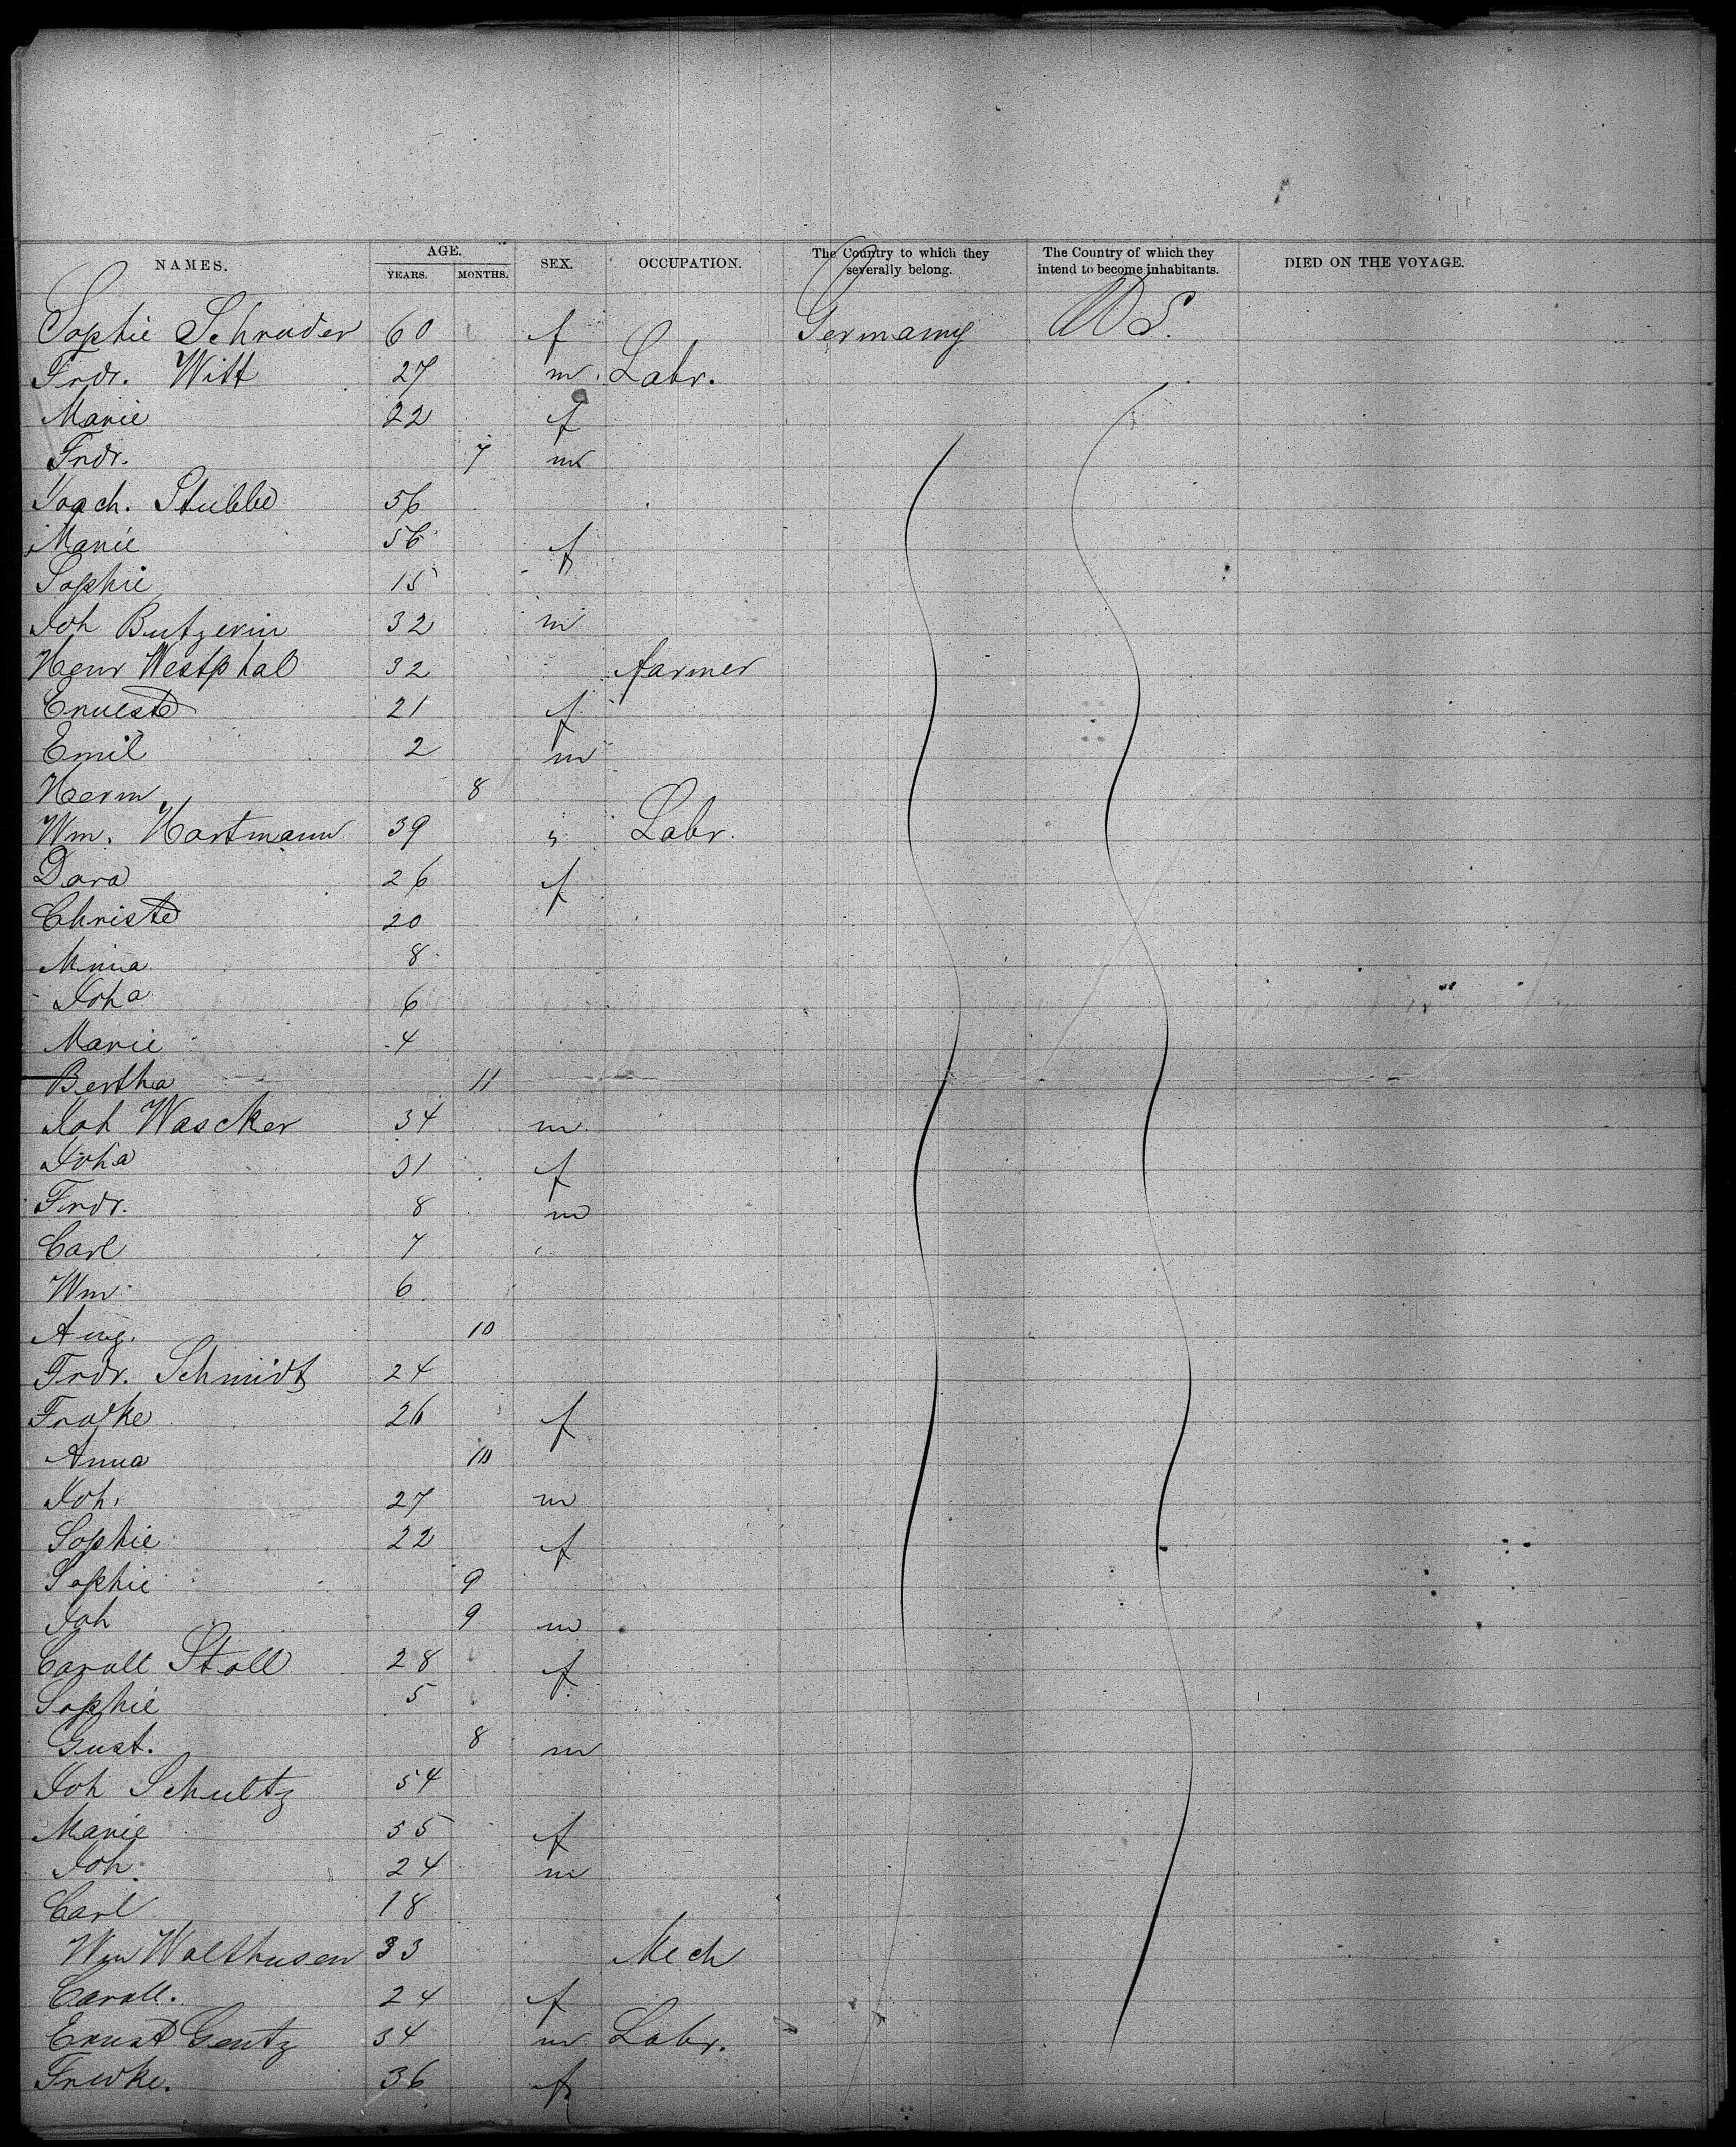 NAMES. AGE. YEARS. MONTHS. SEX. OCCUPATION. The Country to which they severally belong. The Country of which they intend to become inhabitants. DIED ON THE VOYAGE.
Sophie Schroder 60 f Germany U S.
Frdr. Witt 27 m Labr.
Marie 22 f
Frdr. 7 m
Joach. Stubbe 56
Marie 56 f
Sophie 15
Joh Butzerin 32 m
Henr Westphal 32 farmer
Erneste 21 f
Emil 2 m
Herm. 8
Wm. Hartmann 39 " Labr.
Dora 26 f
Christe 20
Minna 8
Joha 6
Marie 4
Bertha 11
Joh Wascker 34 m
Joha 31 f
Frdr. 8 m
Carl 7
Wm 6
Aug. 10
Frdr. Schmidt 24
Fradke 26 f
Anna 10
Joh. 27 m
Sophie 22 f
Sophie 9
Joh 9 m
Caroll Stoll 28 f
Sophie 5
Gust. 8 m
Joh Schultz 54
Marie 55 f
Joh. 24 m
Carl 18
Wm Walthusen 33 Mech
Caroll. 24 f
Ernst Gentz 34 m Labr.
Friedke. 36 f